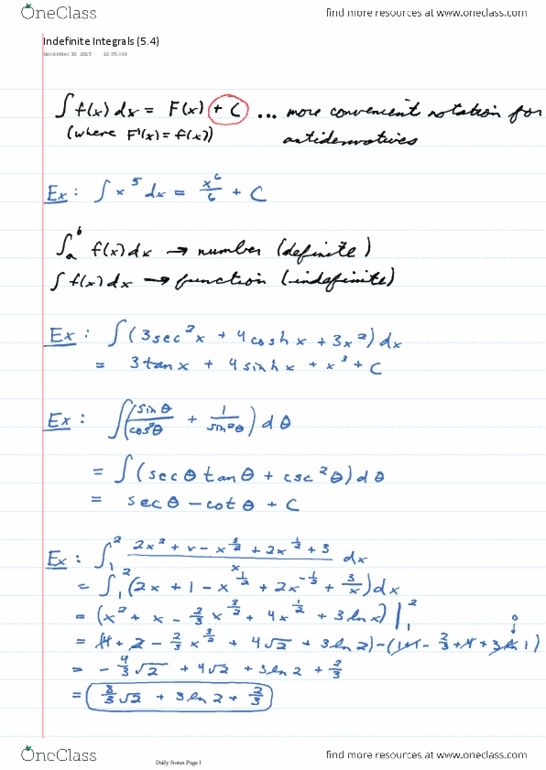 OneClass
find more resources at www.oneclass.com
Indefinite Integrals (5.4)
November 30, 2015 11:35 AM
∫ f(x) dx = F(x) + C ... more convenient notation for
(where F'(x) = f(x)) antiderivatives
Ex: ∫ x^5 dx = x^6/6 + C
∫_a^b f(x) dx → number (definite)
∫ f(x) dx → function (indefinite)
Ex: ∫ (3 sec^2 x + 4 cosh x + 3x^2) dx
= 3 tan x + 4 sinh x + x^3 + C
Ex: ∫ (sin θ/cos^2 θ + 1/sin^2 θ) dθ
= ∫ (sec θ tan θ + csc^2 θ) dθ
= sec θ - cot θ + C
Ex: ∫_1^2 (2x^2 + x - x^(3/2) + 2x^(1/2) + 3)/x dx
= ∫_1^2 (2x + 1 - x^(1/2) + 2x^(-1/2) + 3/x) dx
= (x^2 + x - 2/3 x^(3/2) + 4x^(1/2) + 3 ln x) |_1^2
0
= (4 + 2 - 2/3 x^(3/2) + 4√2 + 3 ln 2) - (1+1 - 2/3 + 4 + 3 ln 1)
= - 4/3 √2 + 4√2 + 3 ln 2 + 2/3
= 8/3 √2 + 3 ln 2 + 2/3
Daily Notes Page 1
OneClass
find more resources at www.oneclass.com